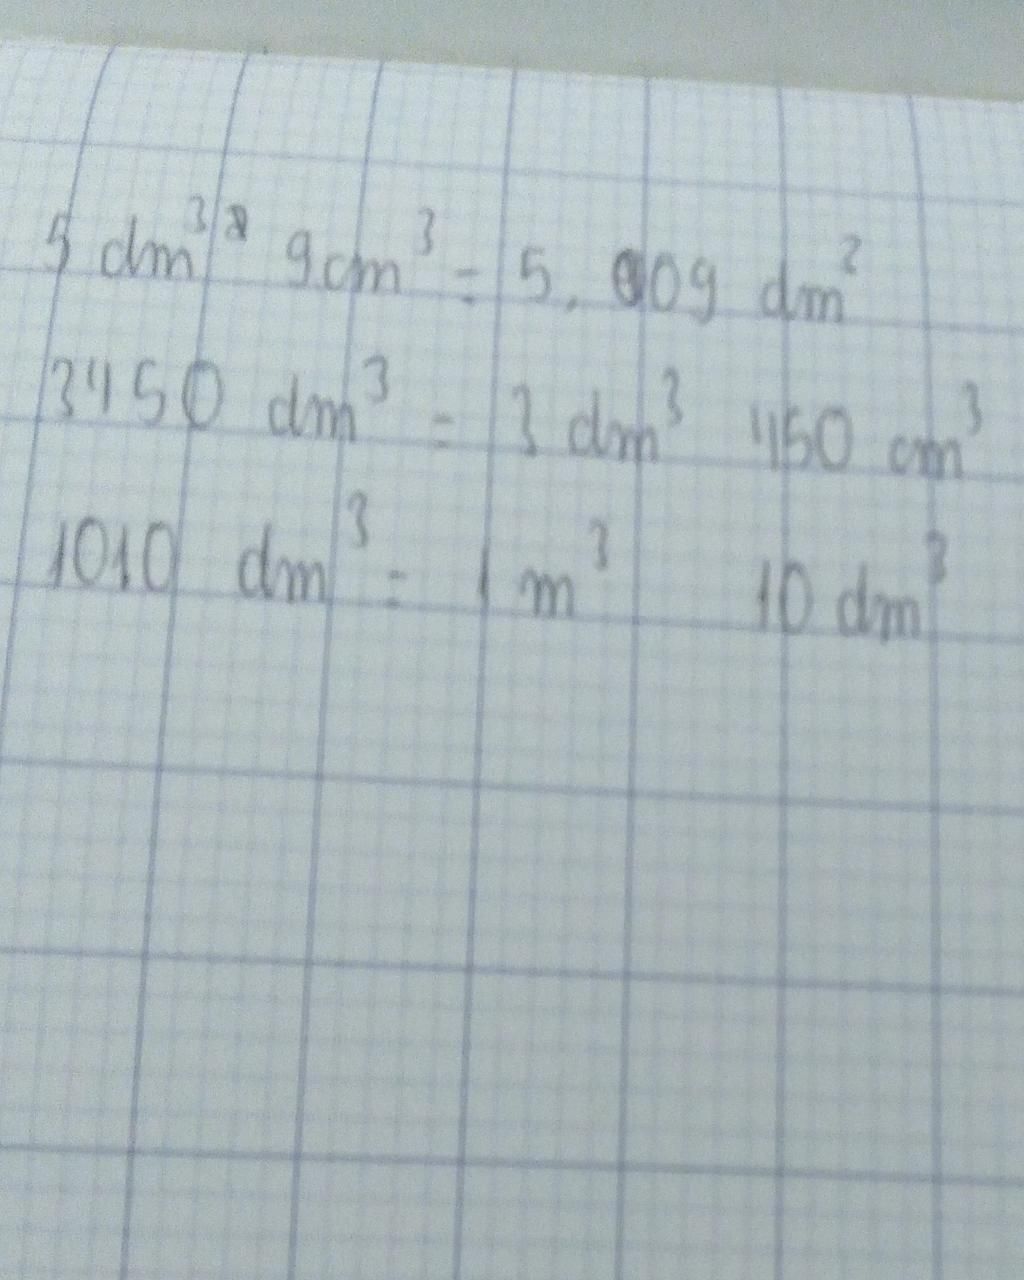 5 dm³ 9 cm³ = 5,009 dm²
3450 dm³ = 3 dm³ 450 cm³
1010 dm³ = 1 m³ 10 dm³